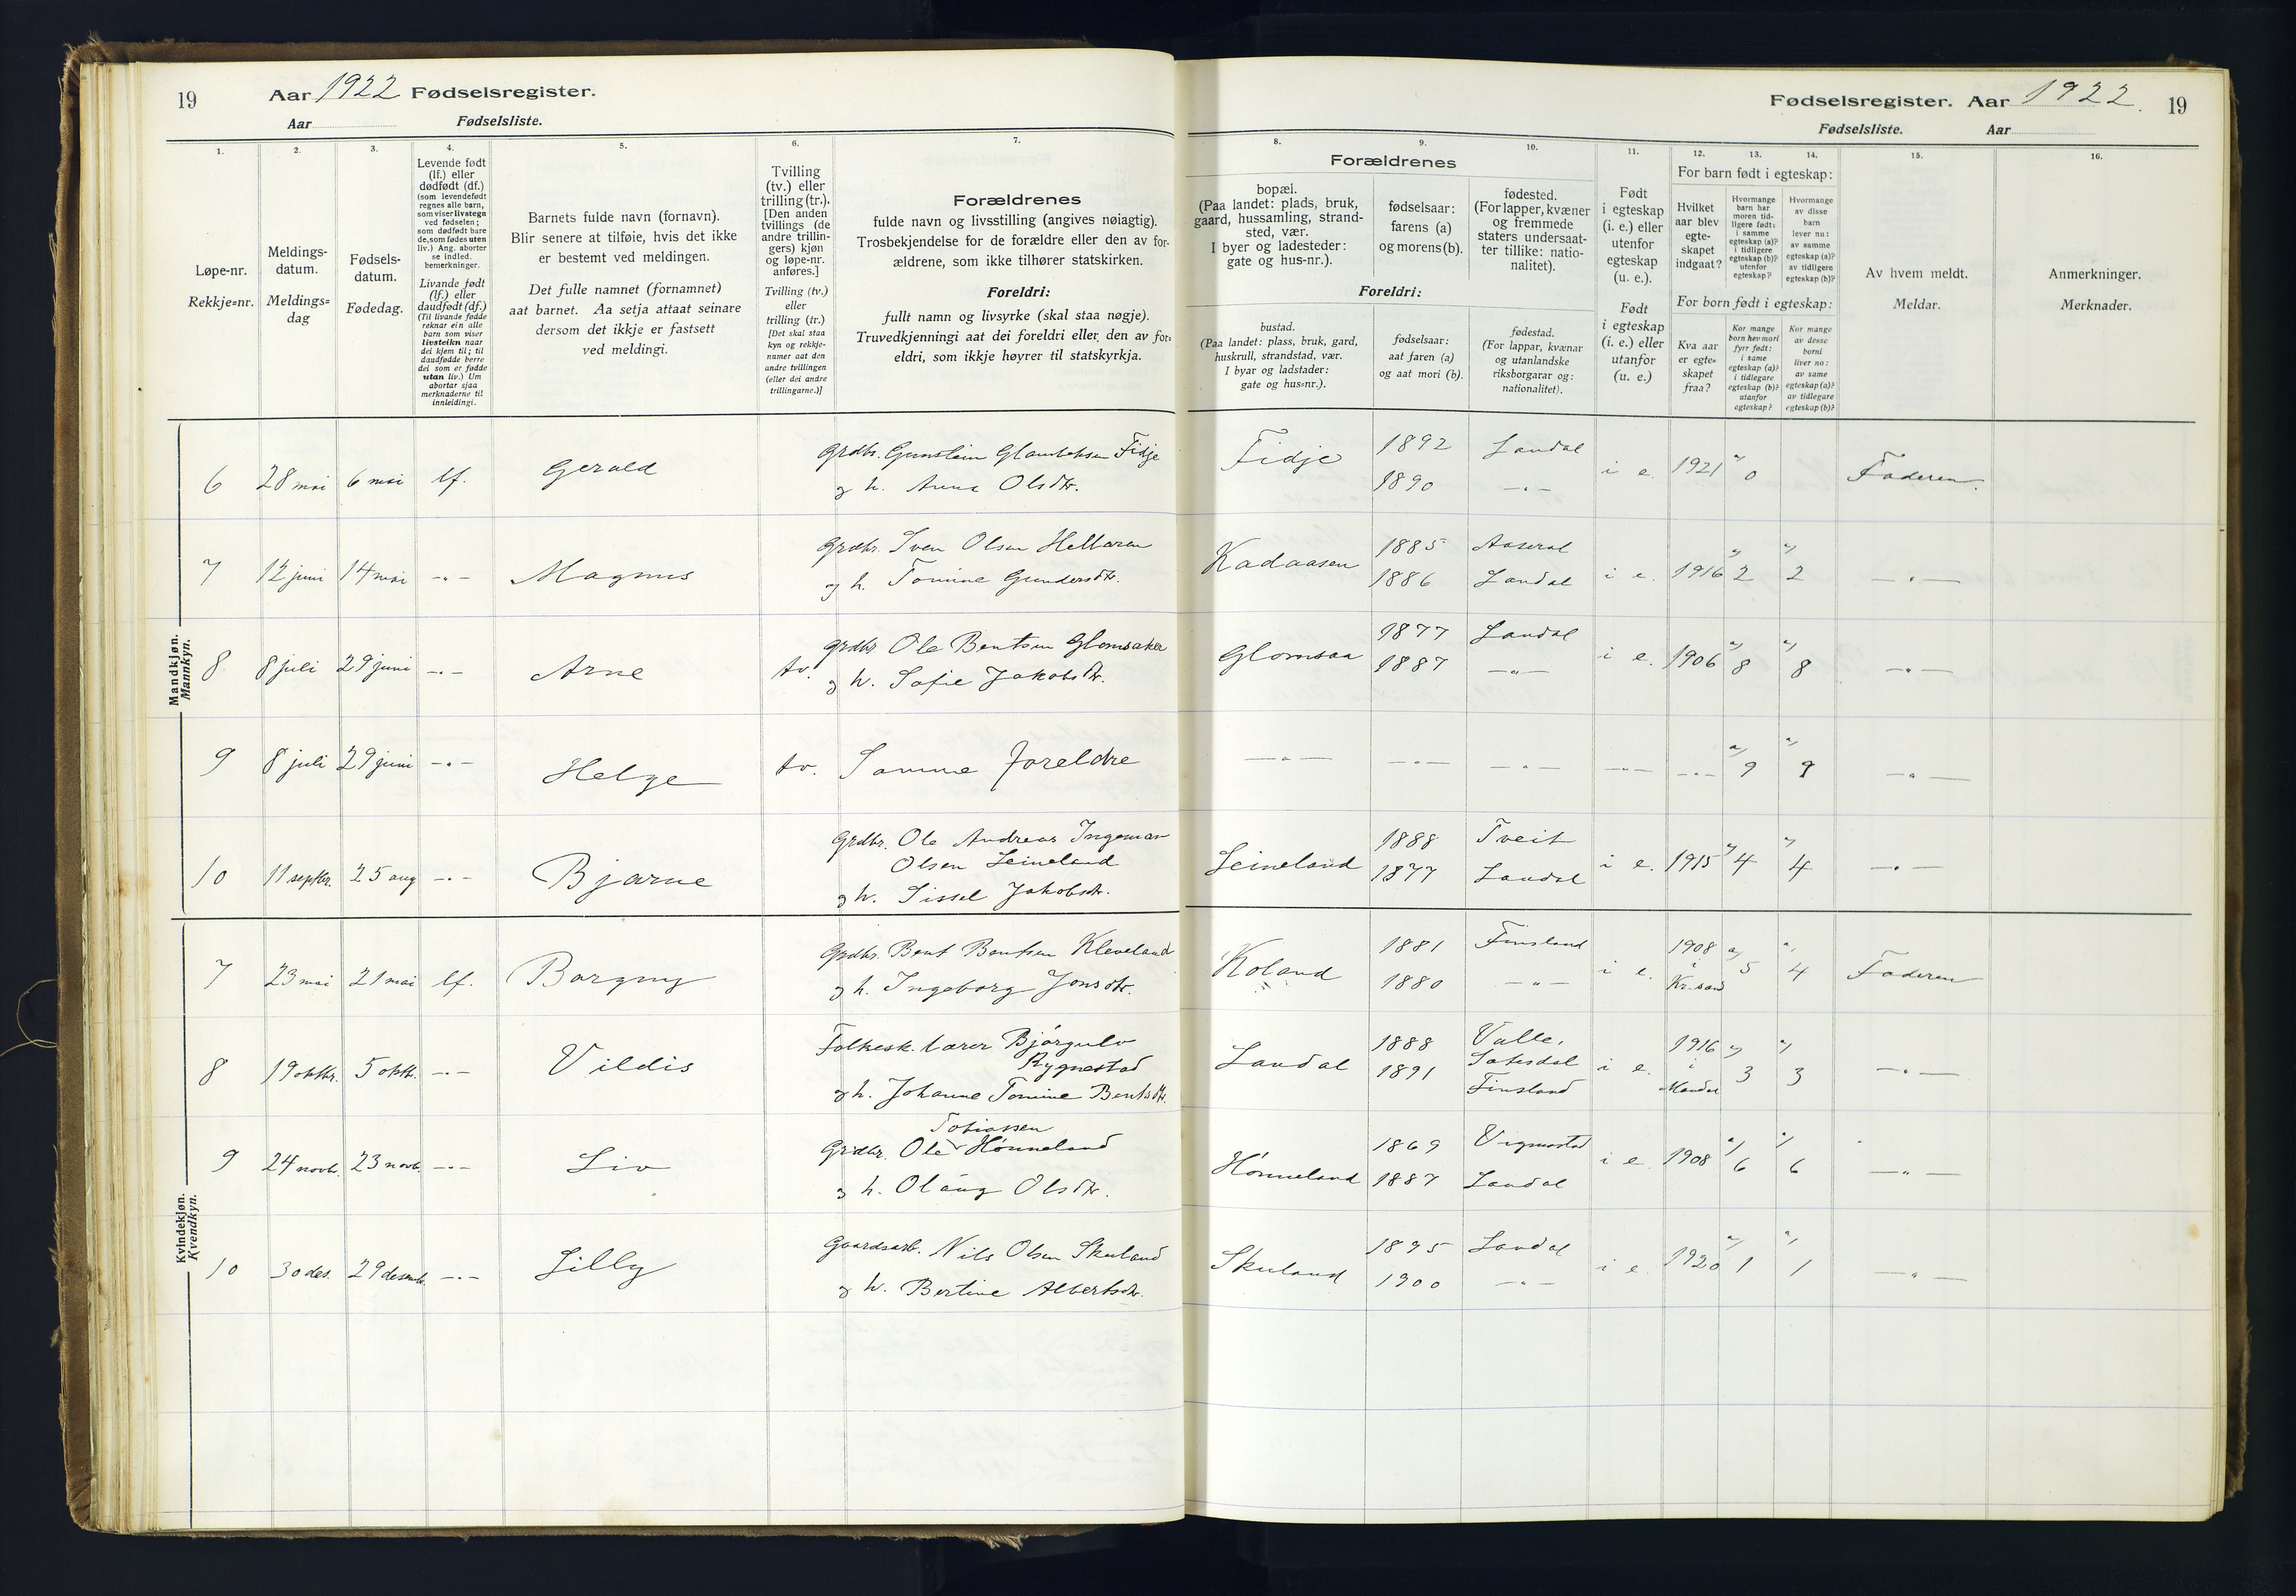 19
Aar 1922 Fødselsregister.
Aar
Fødselsliste.
1.
Løpe-nr.
Rekkje=nr.
2.
Meldings-
datum.
Meldings=
dag
3.
Fødsels-
datum.
Fødedag.
4.
Levende født
(lf.) eller
dødfødt (df.)
(som levendefødt
regnes alle barn,
som viser livstegn
ved fødselen;
som dødfødt bare
de, som fødes uten
liv.) Ang. aborter
se indled.
bemerkninger.
Livande født
(lf.) eller
daudfødt (df.)
(Til livande fødde
reknar ein alle
barn som viser
livsteikn naar
dei kjem til; til
daudfødde berre
dei som er fødde
utan liv.) Um
abortar sjaa
merknaderne til
innleidingi.
5.
Barnets fulde navn (fornavn).
Blir senere at tilføie, hvis det ikke
er bestemt ved meldingen.
Det fulle namnet (fornamnet)
aat barnet. Aa setja attaat seinare
dersom det ikkje er fastsett
ved meldingi.
6.
Tvilling
(tv.) eller
trilling (tr.).
[Den anden
tvillings (de
andre trillin-
gers) kjøn
og løpe-nr.
anføres.]
Tvilling (tv.)
eller
trilling (tr.)
[Det skal staa
kyn og rekkje-
numer aat den
andre tvillingen
(eller dei andre
trillingarne.)]
7.
Forældrenes
fulde navn og livsstilling (angives nøiagtig).
Trosbekjendelse for de forældre eller den av for-
ældrene, som ikke tilhører statskirken.
Foreldri:
fullt namn og livsyrke (skal staa nøgje).
Truvedkjenningi aat dei foreldri eller den av for=
eldri, som ikkje høyrer til statskyrkja.
Mandkjøn.
Mannkyn.
6 28 mai 6 mai lf. Gerald Grdbr. Gunstein Fidje
og h. Anna Olsdtr.
7 12 juni 14 mai -"- Magnus Grdbr. Sven Olsen Hellaren
og h. Tomine Gundersdtr.
8 8 juli 29 juni -"- Arne tv. Grdbr Ole Bentsen Glomsaker
og h. Sofie Jakobsdtr.
9 8 juli 29 juni -"- Helge tv. Samme foreldre
10 11 septbr. 25 aug -"- Bjarne Grdbr. Ole Andreas Ingeman
Olsen Leineland
og h. Sissel Jakobsdtr.
Kvindekjøn.
Kvendkyn.
7 23 mai 21 mai lf. Borgny Grdbr. Bent Bentsen Kleveland
og h. Ingeborg Jonsdtr.
8 19 oktbr. 5 oktb. -"- Vildis Folkesk. lærer Bjørgulv
Rygnestad
og h. Johanne Tomine Bentsdtr.
9 24 novb. 23 novb. -"- Liv Tobiassen
Grdbr. Ole Hønneland
og h. Olaug Olsdtr.
10 30 des. 29 desemb. -"- Lilly Gaardsarb. Nils Olsen Skuland
og h. Bertine Albertsdtr.
Fødselsregister. Aar 1922. 19
Fødselsliste. Aar
8.
Forældrenes
bopæl.
(Paa landet: plads, bruk,
gaard, hussamling, strand-
sted, vær.
I byer og ladesteder:
gate og hus-nr.).
Foreldri:
bustad.
(Paa landet: plass, bruk, gard,
huskrull, strandstad, vær.
I byar og ladstader:
gate og hus=nr.).
9.
fødselsaar:
farens (a)
og morens (b).
fødselsaar:
aat faren (a)
og aat mori (b).
10.
fødested.
(For lapper, kvæner
og fremmede
staters undersaat-
ter tillike: natio-
nalitet).
fødestad.
(For lappar, kvænar
og utanlandske
riksborgarar og:
nationalitet).
11.
Født
i egteskap
(i. e.) eller
utenfor
egteskap
(u. e.).
Født
i egteskap
(i. e.) eller
utanfor
(u. e.)
12. 13. 14.
For barn født i egteskap:
Hvilket
aar blev
egte-
skapet
indgaat?
Hvormange
barn har
moren tid-
ligere født:
i samme
egteskap (a)?
i tidligere
egteskap (b)?
utenfor
egteskap?
Hvormange
av disse
barn
lever nu:
av samme
egteskap (a)?
av tidligere
egteskap (b)?
For born født i egteskap:
Kva aar
er egte=
skapet
fraa?
Kor mange
born hev mori
fyrr født:
i same
egteskap (a)?
i tidlegare
egteskap (b)?
utanfor
egteskap?
Kor mange
av desse
borni
liver no:
av same
egteskap (a)?
av tidlegare
egteskap (b)?
15.
Av hvem meldt.
Meldar.
16.
Anmerkninger.
Merknader.
Fidje 1892 Laudal
1890 -"- i e. 1921 a) 0 Faderen.
Kadaasen 1885 Aaseral
1886 Laudal i e. 1916 a) 2 a) 2 -"-
Glomsaa 1877 Laudal
1887 -"- i e. 1906 a) 8 a) 8 -"-
-"- -"- -"- -"- -"- a) 9 a) 9 -"-
Leineland 1888 Tveit
1877 Laudal i e. 1915 a) 4 a) 4 -"-
Koland 1881 Finsland
1880 -"- i e. 1908 i Kr.sand a) 5 a) 4 Faderen
Laudal 1888 Valle,
Sætesdal
1891 Finsland i e. 1916 i Mandal a) 3 a) 3 -"-
Hønneland 1869 Vigmostad
1887 Laudal i e 1908 a) 6 a) 6 -"-
Skuland 1895 Laudal
1900 -"- i e 1920 a) 1 a) 1 -"-